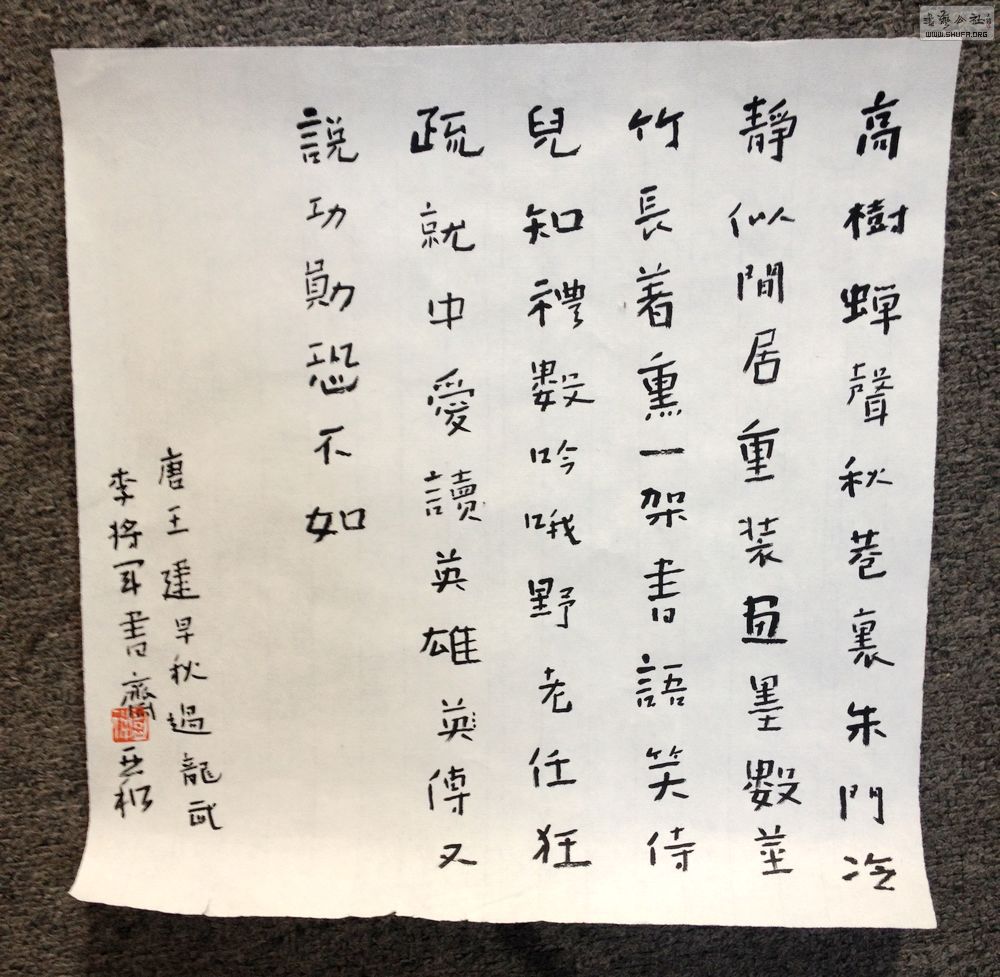 高樹蟬聲秋巷裏朱門冷
靜似閒居重装畫墨數莖
竹長着熏一架書語笑侍
兒知禮數吟哦野老任狂
疏就中愛讀英雄英傳又
說功勛恐不如
唐王建早秋過龍武
李將軍書齋
WWW.SHUFA.ORG